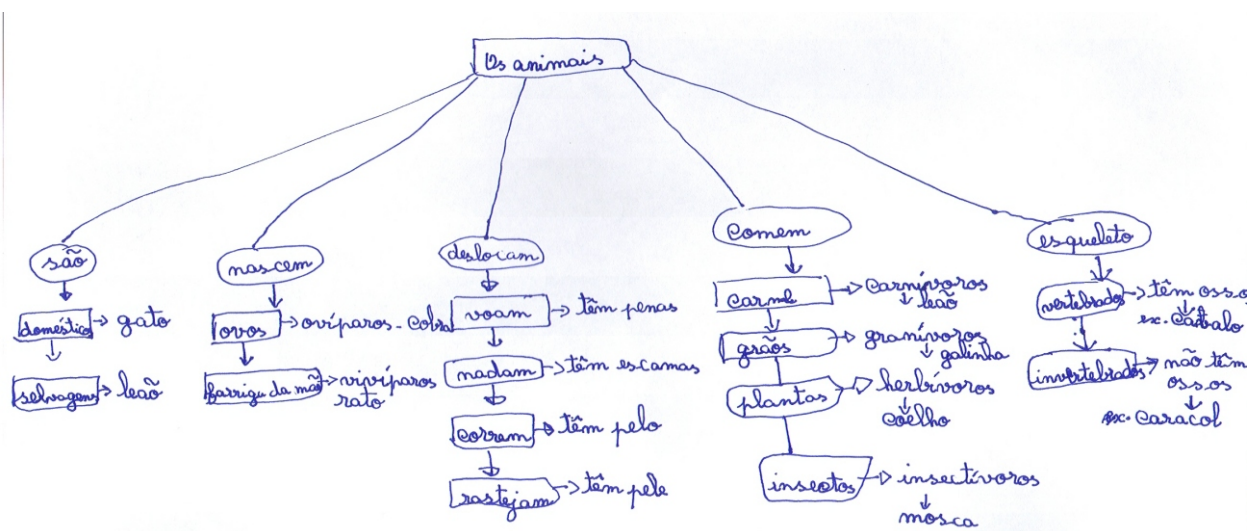 Os animais
são
doméstico
gato
selvagens
leão
nascem
ovos
ovíparos - cobra
barriga da mãe
vivíparos
rato
deslocam
voam
têm penas
nadam
têm escamas
correm
têm pelo
rastejam
têm pele
comem
carne
carnívoros
leão
grãos
granívoros
galinha
plantas
herbívoros
coelho
insectos
insectívoros
mosca
esqueleto
vertebrados
têm ossos
ex. Cavalo
invertebrados
não têm
ossos
ex. caracol